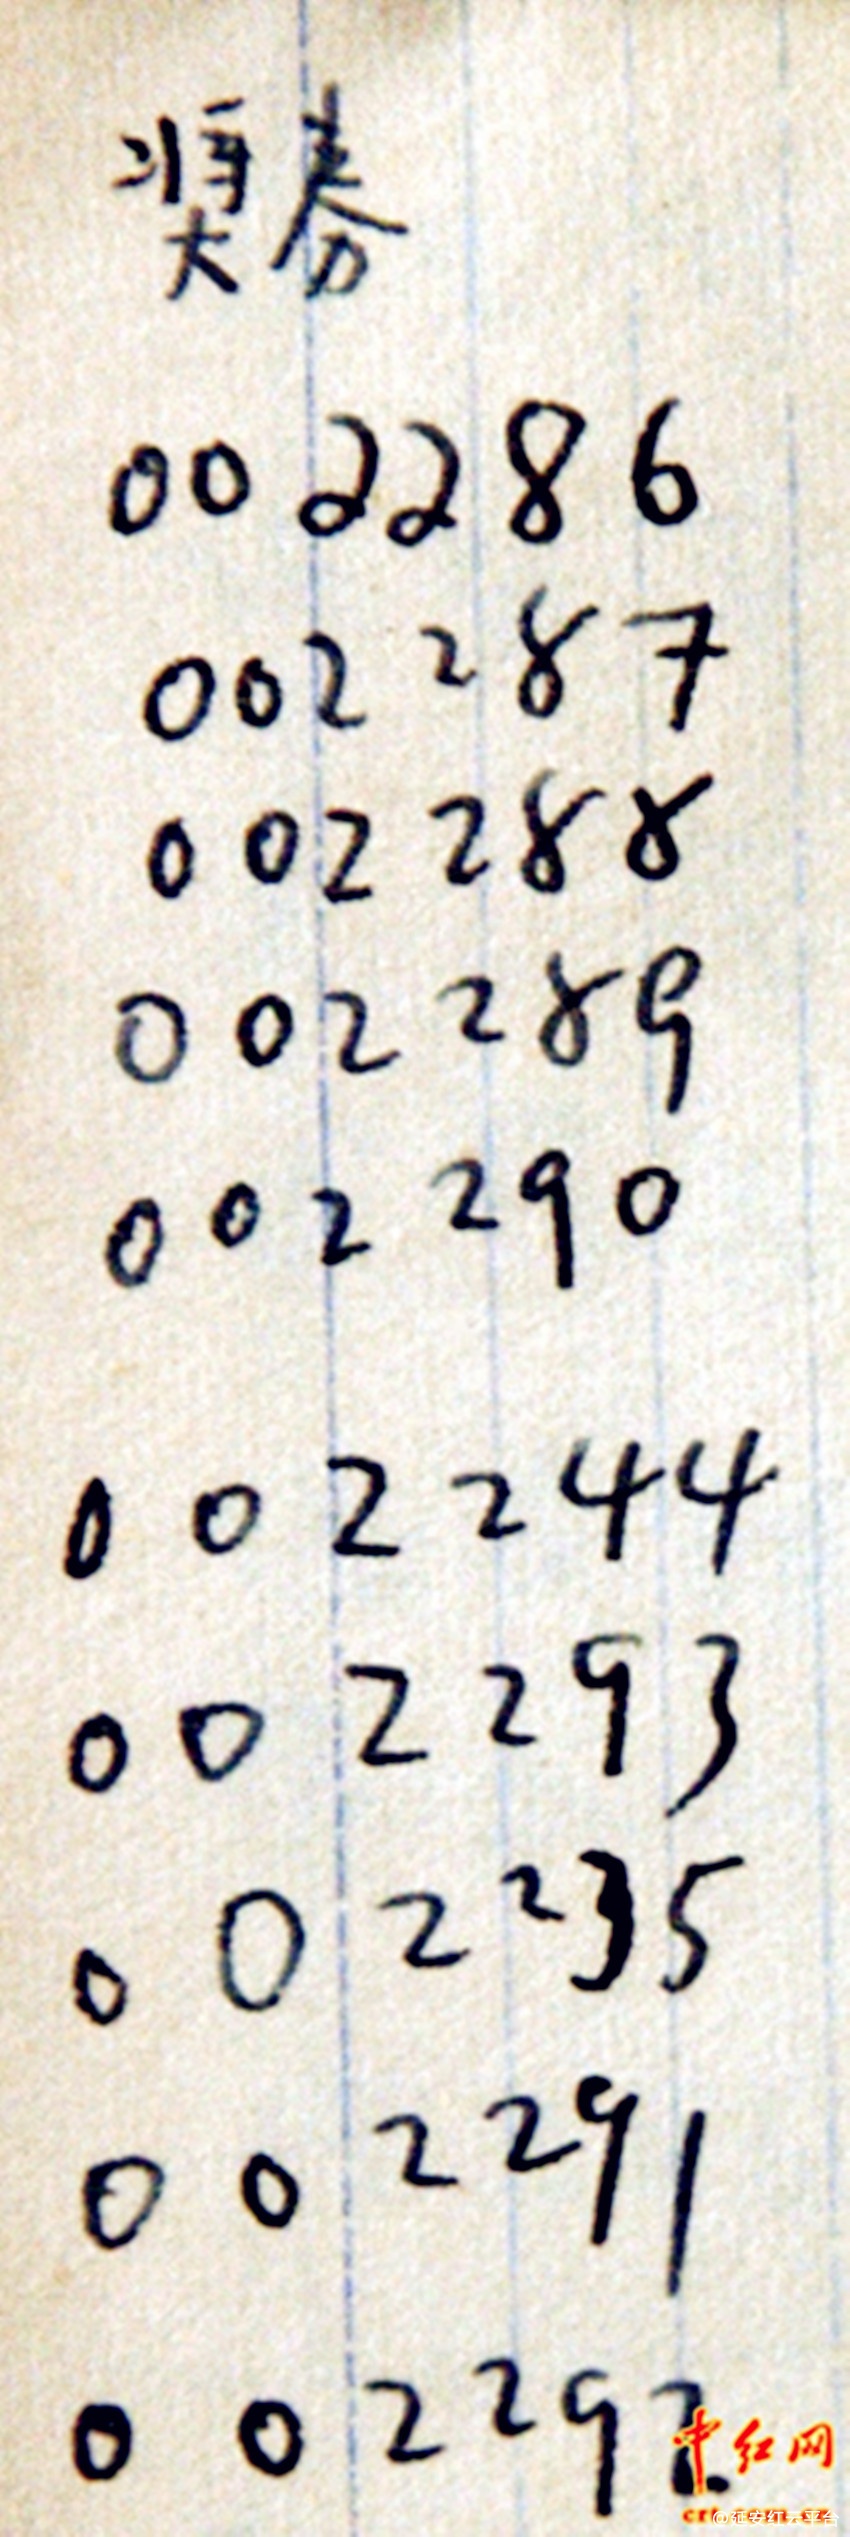 奖券
002286
002287
002288
002289
002290
002244
002293
002235
002291
002292
中红网
@延安红云平台